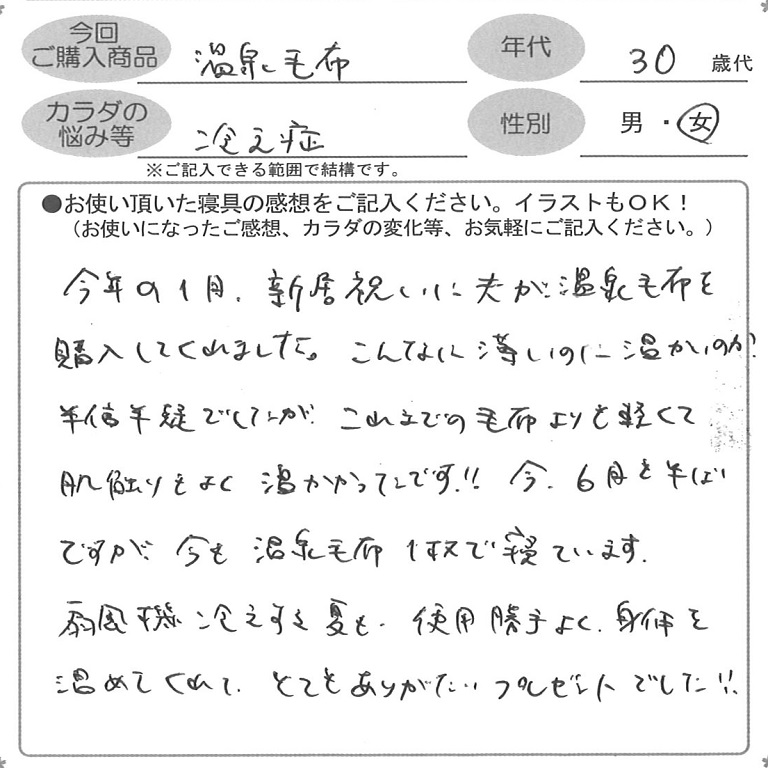 今回 ご購入商品 温泉毛布 年代 30 歳代
カラダの悩み等 冷え症 性別 男・女
※ご記入できる範囲で結構です。
●お使い頂いた寝具の感想をご記入ください。イラストもOK！
（お使いになったご感想、カラダの変化等、お気軽にご記入ください。）
今年の1月、新居祝いに夫が温泉毛布を
購入してくれました。こんなに薄いのに温かいのか?
半信半疑でしたが、これまでの毛布よりも軽くて
肌触りもよく温かかったです!! 今、6月も半ば
ですが、今も温泉毛布1枚で寝ています。
扇風機冷えする夏も、使用勝手よく、身体を
温めてくれて、とてもありがたいプレゼントでした!!